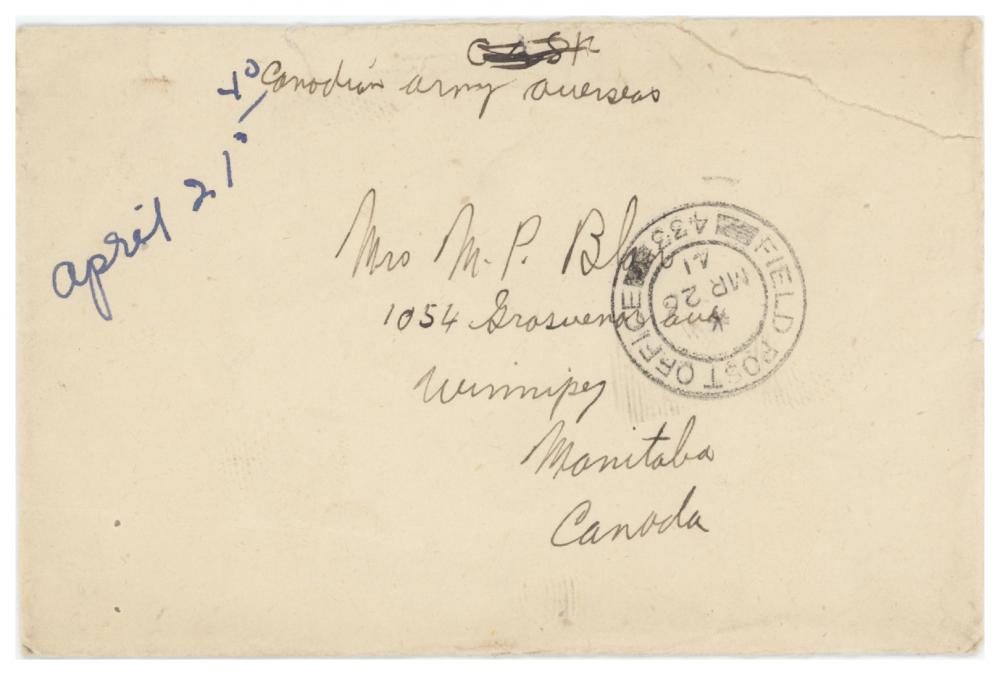 Canadian army overseas
april 21st
Mrs M. P.
1054 Grosvenor ave
Winnipeg
Manitoba
Canada
FIELD POST OFFICE
433
MR 26
41